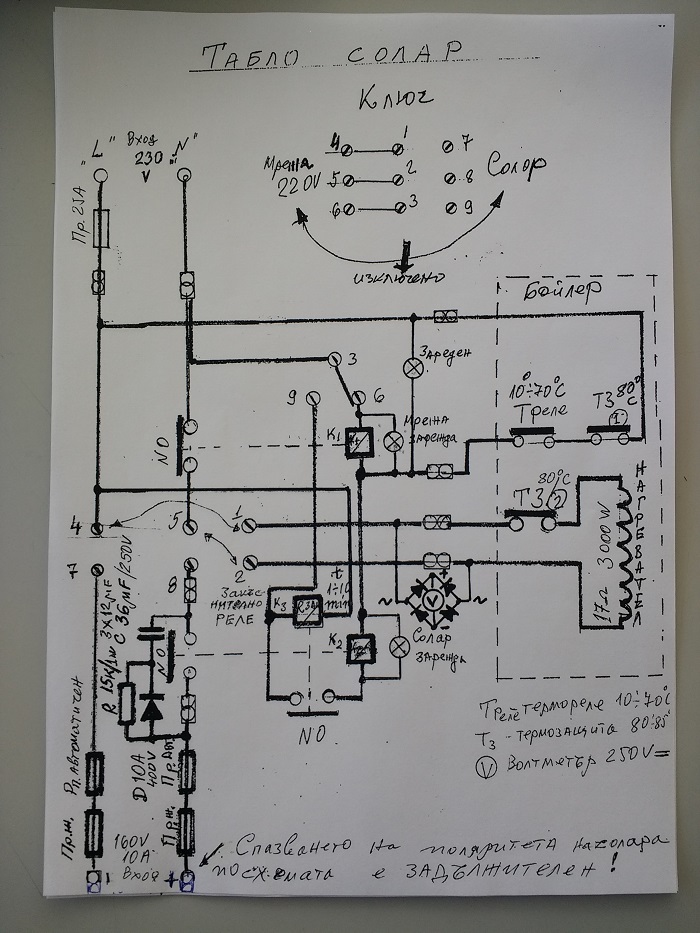 ТАБЛО СОЛАР
Ключ
"L" Вход "N"
230
V
Мрежа
220V
Солар
4 1 7
5 2 8
6 3 9
изключено
Пр. 25А
Бойлер
Зареден
3
9 6
10÷70°C
Треле
ТЗ 80°C
1
K1
Мрежа
зарежда
NO
80°C
ТЗ 2
4 5 1
2
7 8
НАГРЕВАТЕЛ
3000W
17Ω
Закъс-
нително
РЕЛЕ
K3
t
1÷10
min
V
+
-
~ ~
K2
Солар
зарежда
NO
R 15K/1w
3x12µF
C 36µF/250V
NO
D 10A
400V
Пр. Авт.
Пр. Автоматичен
Пр.ж.
Пр.ж.
160V
10A
Вход
- +
Треле термореле 10÷70°C
ТЗ - термозащита 80÷85°
V Волтметър 250V=
Спазването на поляритета на солара
по схемата е ЗАДЪЛЖИТЕЛЕН!